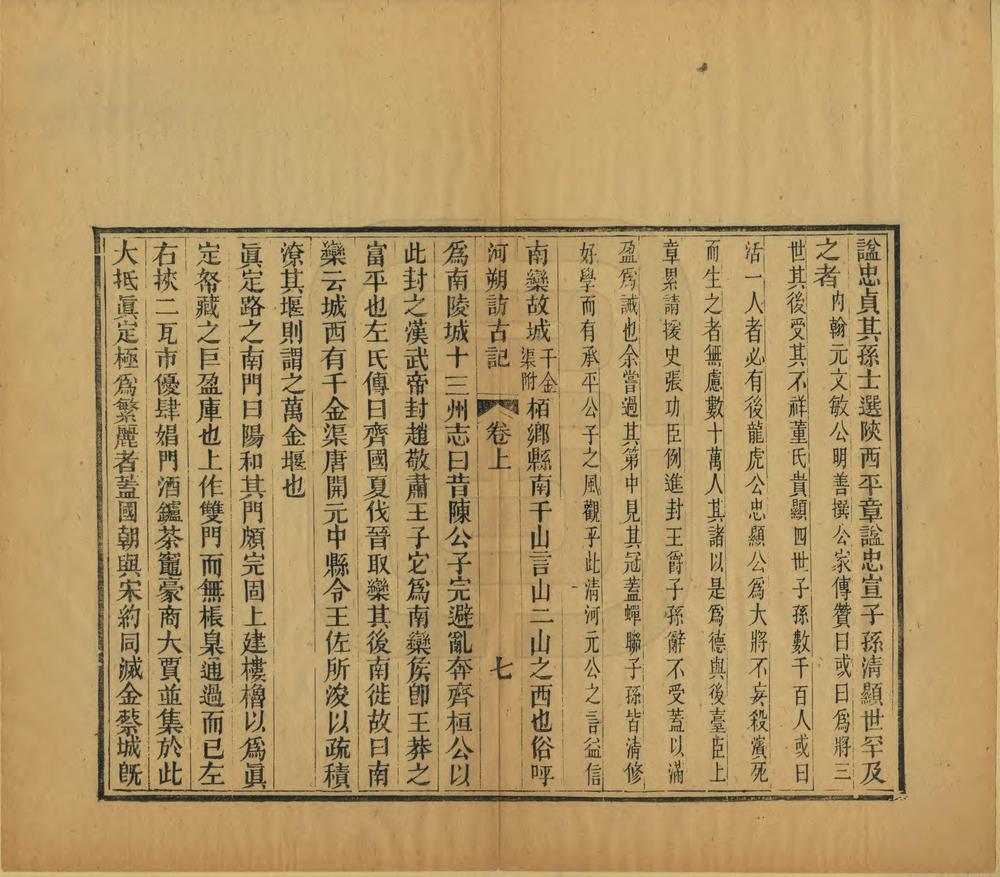 謚忠貞其孫士選陝西平章謚忠宣子孫清顯世罕及
之者内翰元文敏公明善撰公家傳贊曰或曰爲將三
世其後受其不祥董氏貴顯四世子孫數千百人或曰
活一人者必有後龍虎公忠顯公爲大將不妄殺濱死
而生之者無慮數十萬人其諸以是爲德與後臺臣上
章累請援史張功臣例進封王爵子孫辭不受蓋以滿
盈爲誡也余嘗過其第中見其冠蓋蟬聯子孫皆清修
好學而有承平公子之風觀乎此清河元公之言益信
南欒故城千金渠附栢鄉縣南千山言山二山之西也俗呼
河朔訪古記 卷上 七
爲南陵城十三州志曰昔陳公子完避亂奔齊桓公以
此封之漢武帝封趙敬肅王子它爲南欒侯卽王莽之
富平也左氏傳曰齊國夏伐晉取欒其後南徙故曰南
欒云城西有千金渠唐開元中縣令王佐所浚以疏積
潦其堰則謂之萬金堰也
眞定路之南門曰陽和其門頗完固上建樓櫓以爲眞
定帑藏之巨盈庫也上作雙門而無棖臬通過而已左
右挾二瓦市優肆娼門酒鑪茶竈豪商大賈並集於此
大抵眞定極爲繁麗者蓋國朝與宋約同滅金蔡城旣